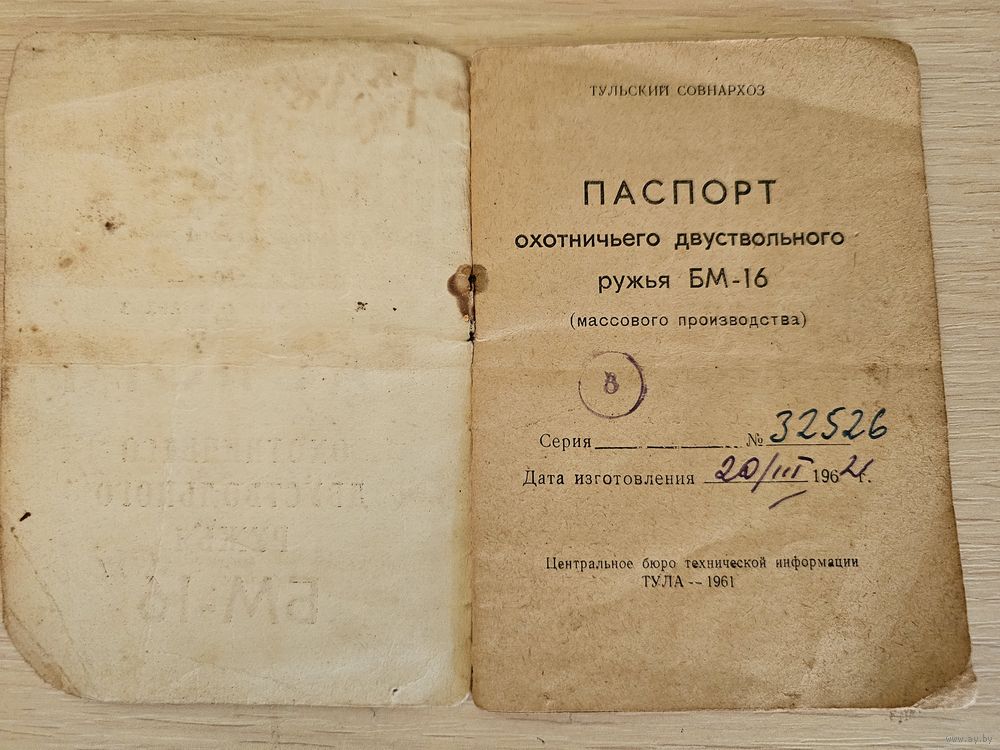 ТУЛЬСКИЙ СОВНАРХОЗ
ПАСПОРТ
охотничьего двуствольного
ружья БМ-16
(массового производства)
8
Серия № 32526
Дата изготовления 20/III 1962 г.
Центральное бюро технической информации
ТУЛА — 1961
www.ay.by